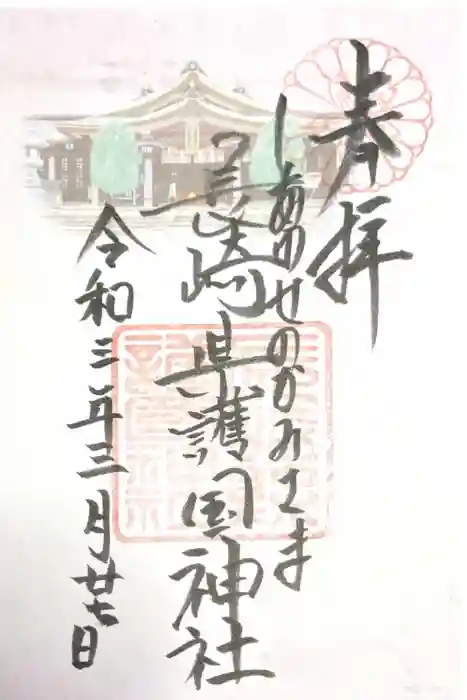 奉拝
しあわせのかみさま
長崎県護国神社
令和三年三月廿七日